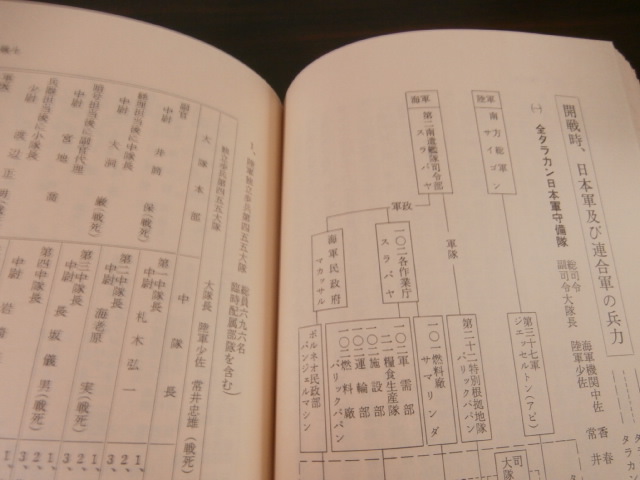 開戦時、日本軍及び連合軍の兵力
㈠ 全タラカン日本軍守備隊
総司令 海軍機関中佐
副司令大隊長 陸軍少佐 常井
陸軍
南方総軍
サイゴン
第三十七軍
ジェッセルトン(アピ)
海軍
第二南遣艦隊司令部
スラバヤ
軍隊
第二十二特別根拠地隊
バリックパパン
一〇二燃料廠
サマリンダ
軍政
一〇二各作業庁
スラバヤ
一〇二軍需部
一〇二糧食生産隊
一〇二施設部
一〇二運輸部
一〇二燃料廠
バリックパパン
海軍民政府
マカッサル
ボルネオ民政部
バンジェルマシン
1、陸軍独立歩兵第四五五大隊 総員六九六名
臨時配属部隊を含む)
独立歩兵第四五五大隊 大隊長 陸軍少佐 常井忠雄(戦死)
大隊本部
副官
中尉 井筒 保(戦死)
経理担当後に中隊長
中尉 大洞 巌(戦死)
暗号担当後に副官代理
中尉 宮地
兵器担当後に小隊長
少尉 渡辺正
中隊長
第一中隊長
中尉 札木弘一
第二中隊長
中尉 海老原 実(戦死)
第三中隊長
中尉 坂 儀男(戦死)
第四中隊長
中尉 岩